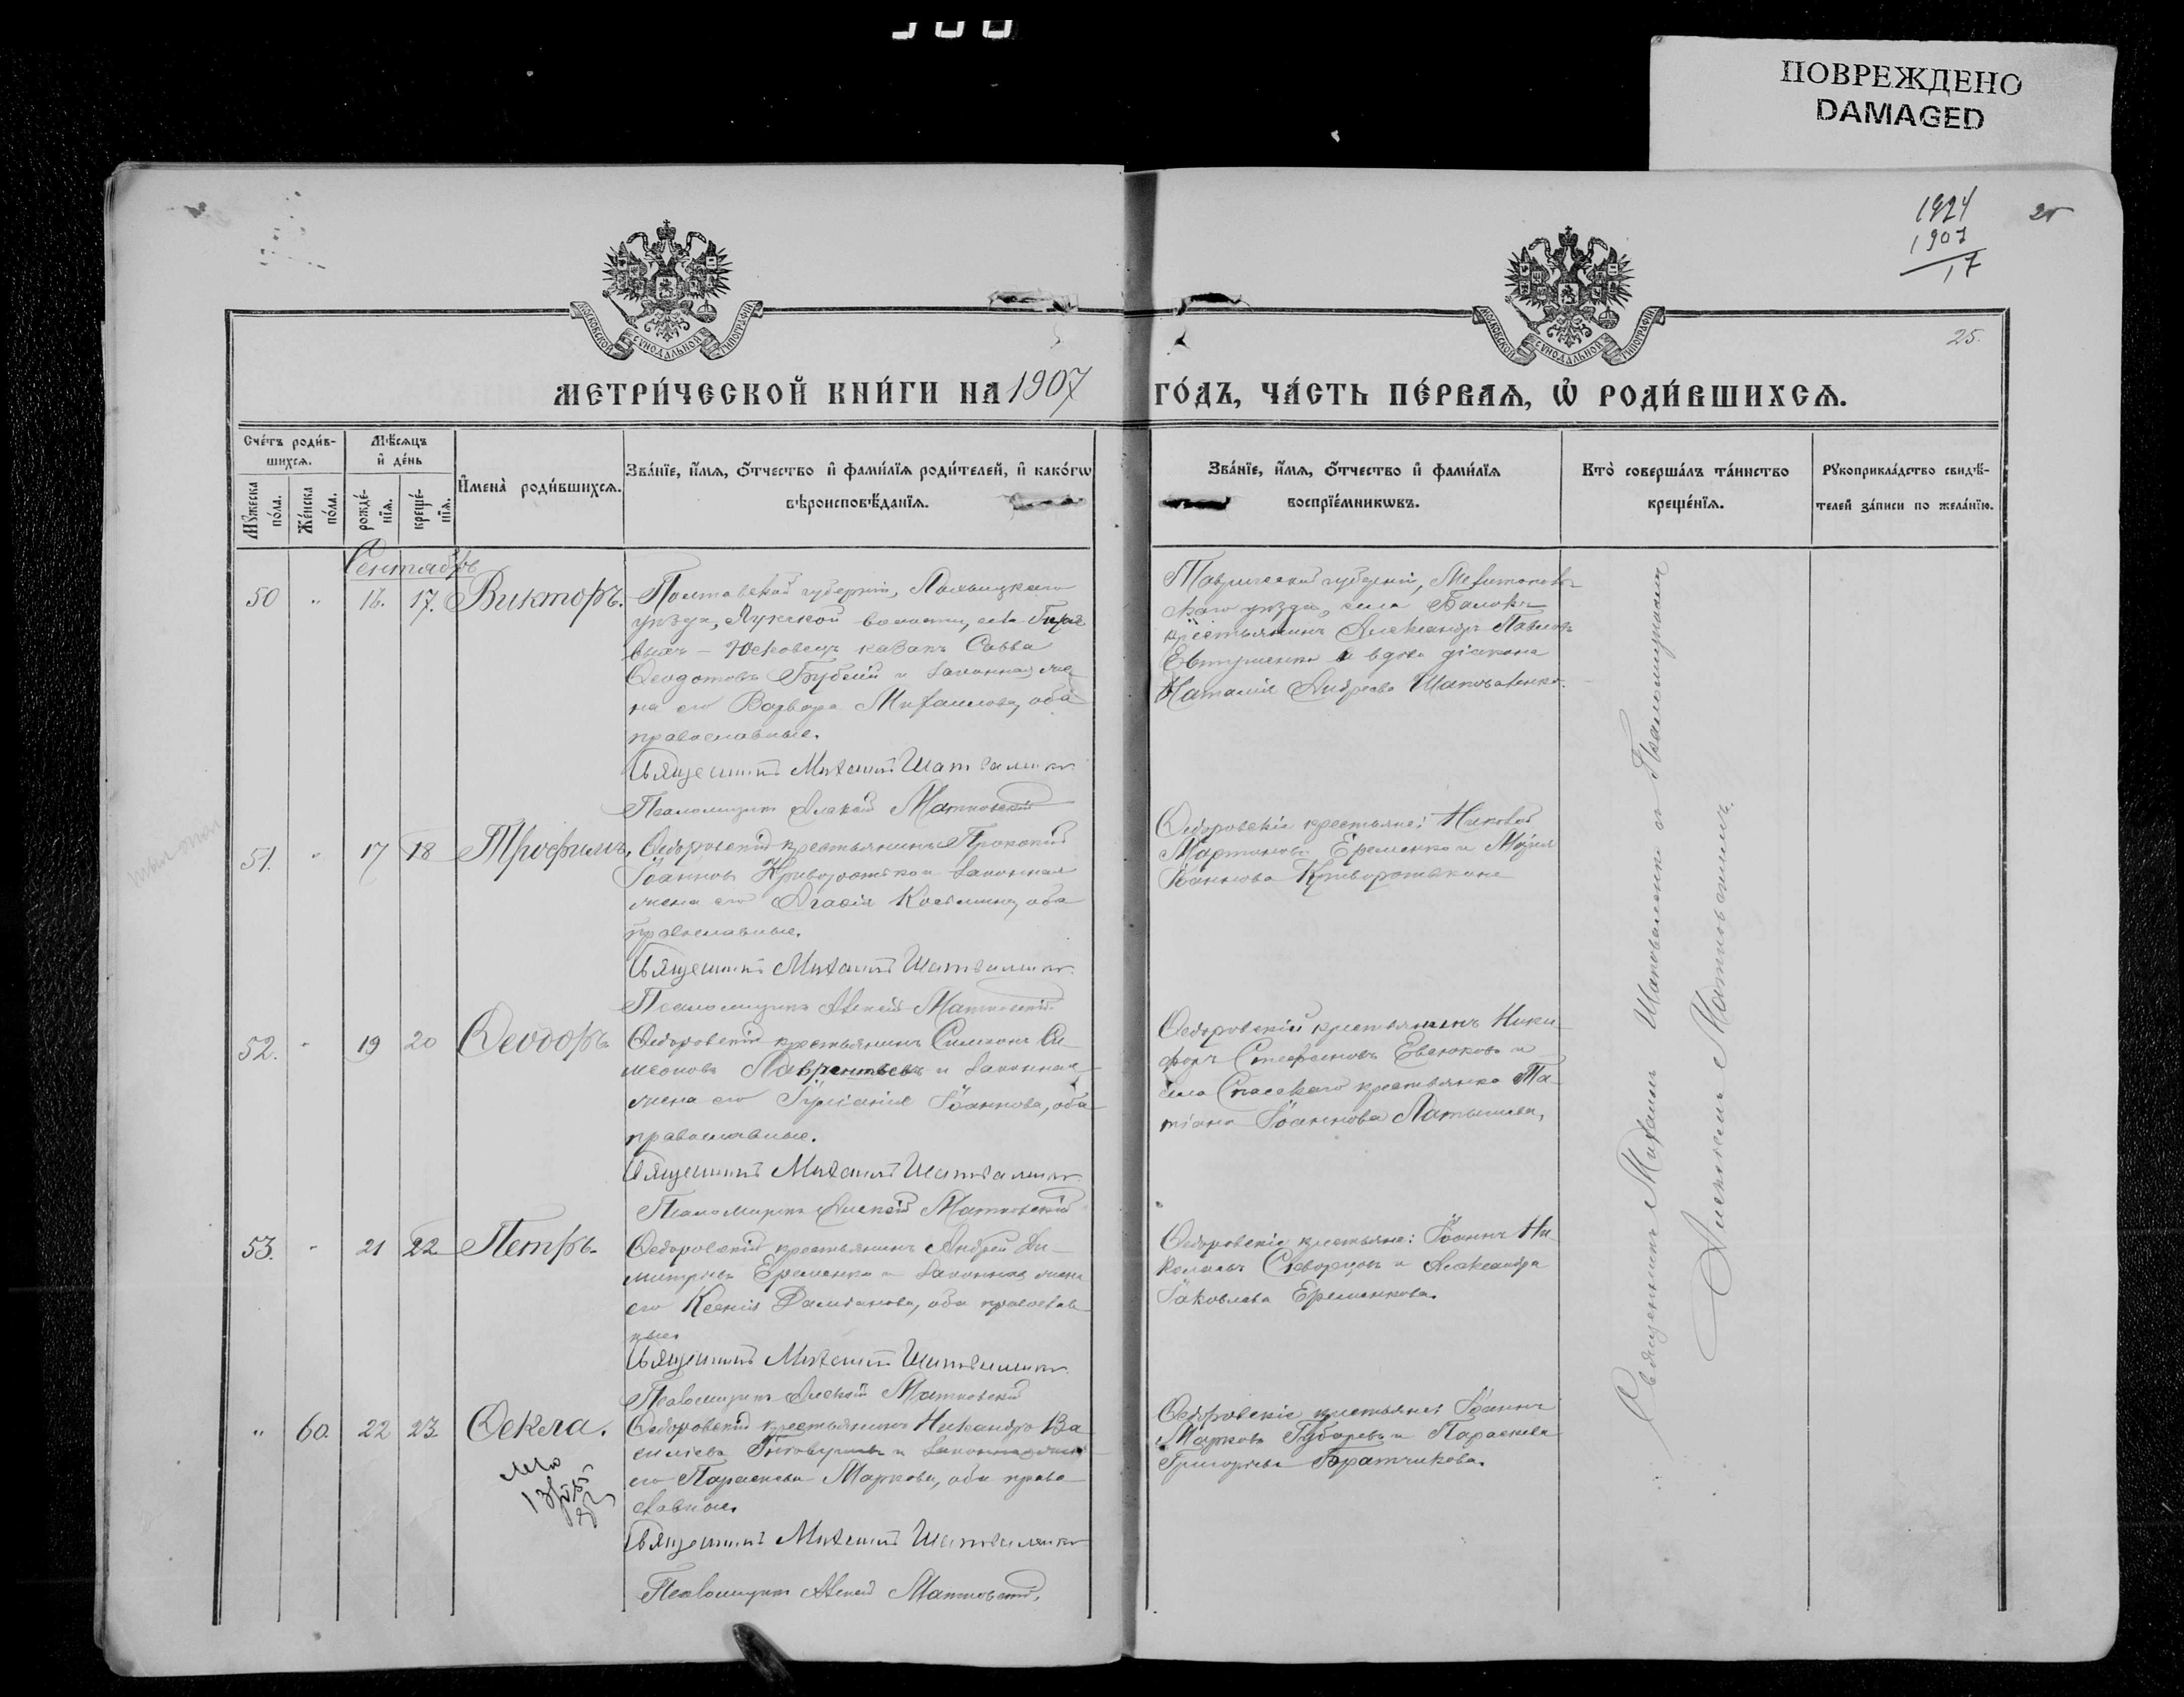 ПОВРЕЖДЕНО
DAMAGED
1924
1907
17
25
25.
МОСКОВСКОЙ СѴНОДАЛЬНОЙ ТИПОГРАФІИ
МОСКОВСКОЙ СѴНОДАЛЬНОЙ ТИПОГРАФІИ
МЕТРИ́ЧЕСКОЙ КНИ́ГИ НА 1907 ГО́ДЪ, ЧА́СТЬ ПЕ́РВАѦ, Ѡ҆ РОДИ́ВШИХСѦ.
Сче́тъ роди́в-
шихсѧ.
Мꙋ́жеска по́ла.
Же́нска по́ла.
Мѣ́сѧцъ
и҆ де́нь
рожде́-
нїѧ.
креще́-
нїѧ.
И҆мена̀ роди́вшихсѧ.
Зва́нїе, и҆́мѧ, ѻ҆́тчество и҆ фами́лїѧ роди́телей, и҆ како́гѡ
вѣроисповѣ́данїѧ.
Зва́нїе, и҆́мѧ, ѻ҆́тчество и҆ фами́лїѧ
воспрїе́мникѡвъ.
Кто̀ соверша́лъ та́инство
креще́нїѧ.
Рꙋкоприкла́дство свидѣ́-
телей за́писи по жела́нїю.
Сентябрь
50 " 16. 17. Викторъ.
Полтавской губерніи, Лохвицкаго
уѣзда, Лукской волости, села
Юсковецъ казакъ Савва
Ѳеодотовъ Бублій и законная же-
на его Варвара Михаилова, оба
православные.
Священникъ Михаилъ Шаповаленко
Псаломщикъ Алексій Матковскій
Таврической губерніи, Мелитополь-
скаго уѣзда, села Балокъ
крестьянинъ Александръ Павловъ
Евтушенко и вдова діакона
Наталія Андреева Шаповаленко.
51. " 17 18 Трофимъ,
Ѳедоровскій крестьянинъ Прокопій
Іоанновъ Криворотько и законная
жена его Агафія Косьмина, оба
православные.
Священникъ Михаилъ Шаповаленко
Псаломщикъ Алексій Матковскій.
Ѳедоровскіе крестьяне:
Мартиновъ Еременко и Марія
Іоаннова Криворотькина
52. " 19 20 Ѳеодоръ
Ѳедоровскій крестьянинъ Симеонъ Си-
меоновъ Лаврентьевъ и законная
жена его Іуліанія Іоаннова, оба
православные.
Священникъ Михаилъ Шаповаленко
Псаломщикъ Алексій Матковскій
Ѳедоровскій крестьянинъ Ники-
форъ Стефановъ Евсюковъ и
села Спасскаго крестьянка Та-
тіана Іоаннова Латышева,
53. " 21 22 Петръ.
Ѳедоровскій крестьянинъ Андрей Ди-
митріевъ Еременко и законная жена
его Ксенія Даміанова, оба православ-
ные.
Священникъ Михаилъ Шаповаленко
Псаломщикъ Алексій Матковскій
Ѳедоровскіе крестьяне: Іоаннъ Ни-
колаевъ Скворцовъ и Александра
Іаковлева Еременкова.
" 60. 22 23. Ѳекла.
Ѳедоровскій крестьянинъ Никандръ Ва-
силіевъ и законная жена
его Параскева Маркова, оба право-
славные.
Священникъ Михаилъ Шаповаленко
Псаломщикъ Алексій Матковскій.
Ѳедоровскіе крестьяне: Іоаннъ
Марковъ Губаревъ и Параскева
Григорьева Братчикова.
Священникъ Михаилъ Шаповаленко съ Псаломщикомъ
Алексіемъ Матковскимъ.